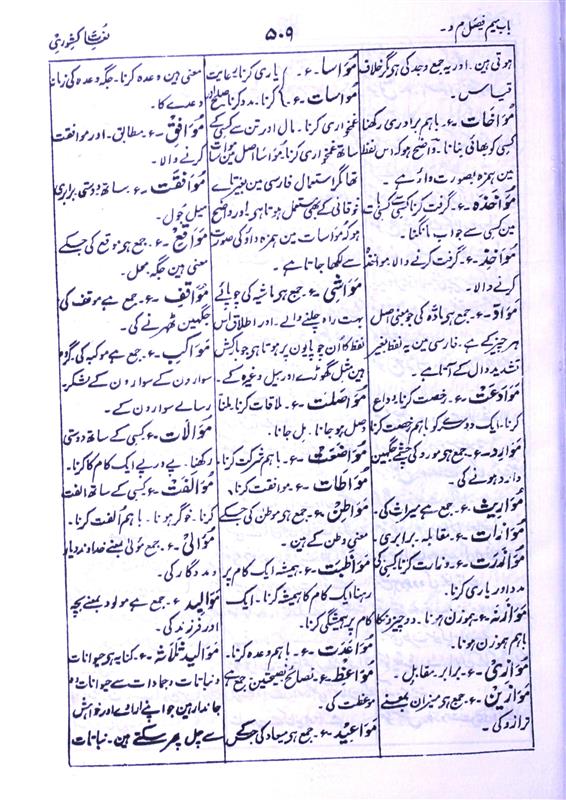 باب میم فصل م و۔
۵۰۹
لغت کشوری
ہوتی ہین۔ اور یہ جمع وجد کی ہی مگر خلاف
قیاس۔
مُوَاخَات۔ ع۔ باہم برادری رکھنا
کسی کو بھائی بنانا۔ واضح ہو کہ اس لفظ
مین ہمزہ بصورت واؤ ہے۔
مُوَاخَذَہ۔ ع۔ گرفت کرنا کسی سے کسی بات
مین کسی سے جواب مانگنا۔
مُوَاخِذ۔ ع۔ گرفت کرنے والا۔ مواخذہ
کرنے والا۔
مَوَادّ۔ ع۔ جمع ہی مادّہ کی جو بمعنی اصل
ہر چیز کے ہے۔ فارسی مین یہ لفظ بغیر
تشدید دال کے آتا ہے۔
مُوَادَعَت۔ ع۔ رخصت کرنا۔ وداع
کرنا۔ ایک دوسرے کو باہم رخصت کرنا
مَوَارِد۔ ع۔ جمع ہی مورد کی جسکے معنی جگہین
وارد ہونے کی۔
مَوَارِیث۔ ع۔ جمع ہے میراث کی۔
مُوَازَات۔ ع۔ مقابلہ۔ برابری۔
مُوَازَرَت۔ ع۔ وزارت کرنا کسی کی
مدد اور یاری کرنا۔
مُوَازَنَہ۔ ہموزن ہونا۔ دو چیزونکا
باہم ہموزن ہونا۔
مُوَازِی۔ ع۔ برابر۔ مقابل۔
مَوَازِین۔ ع۔ جمع ہی میزان بمعنی
ترازو کی۔
مُوَاسا۔ ع۔ یاری کرنا۔ رعایت
مُوَاسات۔ ع۔ کرنا۔ مدد کرنا۔ صلح اور
غمخواری کرنا۔ مال اور تن سے کسی کے
ساتھ غمخواری کرنا۔ مواسا اصل مین مواسات
تھا مگر استعمال فارسی مین بغیر تاے
فوقانی کے بھی مستعمل ہوتا ہی اور واضح
ہو کہ مواسات مین ہمزہ واؤ کی صورت
سے لکھا جاتا ہے۔
مَوَاشِی۔ ع۔ جمع ہی ماشیہ کی جو پائے
بہت راہ چلنے والے۔ اور اطلاق اس
لفظ کا اُن چوپایون پر ہوتا ہی جو بارکش
ہین مثل گھوڑے اور بیل وغیرہ کے۔
مُوَاصَلَت۔ ع۔ ملاقات کرنا۔ ملنا
وصل ہو جانا۔ مل جانا۔
مُوَاضَعَت۔ ع۔ باہم شرکت کرنا۔
مُوَاطَات۔ ع۔ موافقت کرنا۔
مَوَاطِن۔ ع۔ جمع ہی موطن کی جسکے
معنی وطن کے ہین۔
مُوَاظَبَت۔ ع۔ ہمیشہ ایک کام پر
رہنا۔ ایک کام کا ہمیشہ کرنا۔ ایک
کام پر ہمیشگی کرنا۔
مُوَاعَدَت۔ ع۔ باہم وعدہ کرنا۔
مَوَاعِظ۔ ع۔ نصائح۔ نصیحتین جمع ہے
موعظت کی۔
مَوَاعِید۔ ع۔ جمع ہی میعاد کی جسکے
معنی ہین وعدہ کرنا۔ جگہ وعدہ کی۔ زمانہ
وعدے کا۔
مُوَافِق۔ ع۔ مطابق۔ اور موافقت
کرنے والا۔
مُوَافَقَت۔ ع۔ ساتھ دوستی۔ برابری
میل جول۔
مَوَاقِع۔ ع۔ جمع ہی موقع کی جسکے
معنی ہین جگہ۔ محل۔
مَوَاقِف۔ ع۔ جمع ہے موقف کی
جگہین ٹھہرنے کی۔
مَوَاکِب۔ ع۔ جمع ہے موکب کی۔ گروہ
سوارون کے۔ سوارون کے لشکر۔
رسالے سوارون کے۔
مُوَالات۔ ع۔ کسی کے ساتھ دوستی
رکھنا۔ پے درپے ایک کام کا کرنا۔
مُوَالَفَت۔ ع۔ کسی کے ساتھ الفت
کرنا۔ خوگر ہونا۔ باہم اُلفت کرنا۔
مَوَالِی۔ ع۔ جمع مولیٰ بمعنے خداوند و یار
و مددگار کی۔
مَوَالِید۔ ع۔ جمع ہے مولود بمعنے بچہ
اور فرزند کی۔
مَوَالِید ثَلاثَہ۔ ع۔ کنایہ ہی حیوانات
و نباتات و جمادات سے حیوانات وہ
جاندار ہین جو اپنے ارادے اور خواہش
سے چل پھر سکتے ہین۔ نباتات